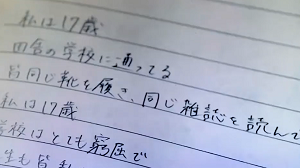 私は17歳
田舎の学校に通ってる
皆同じ靴を履き、同じ雑誌を読んで
私は17歳
学校はとても窮屈で
生も皆